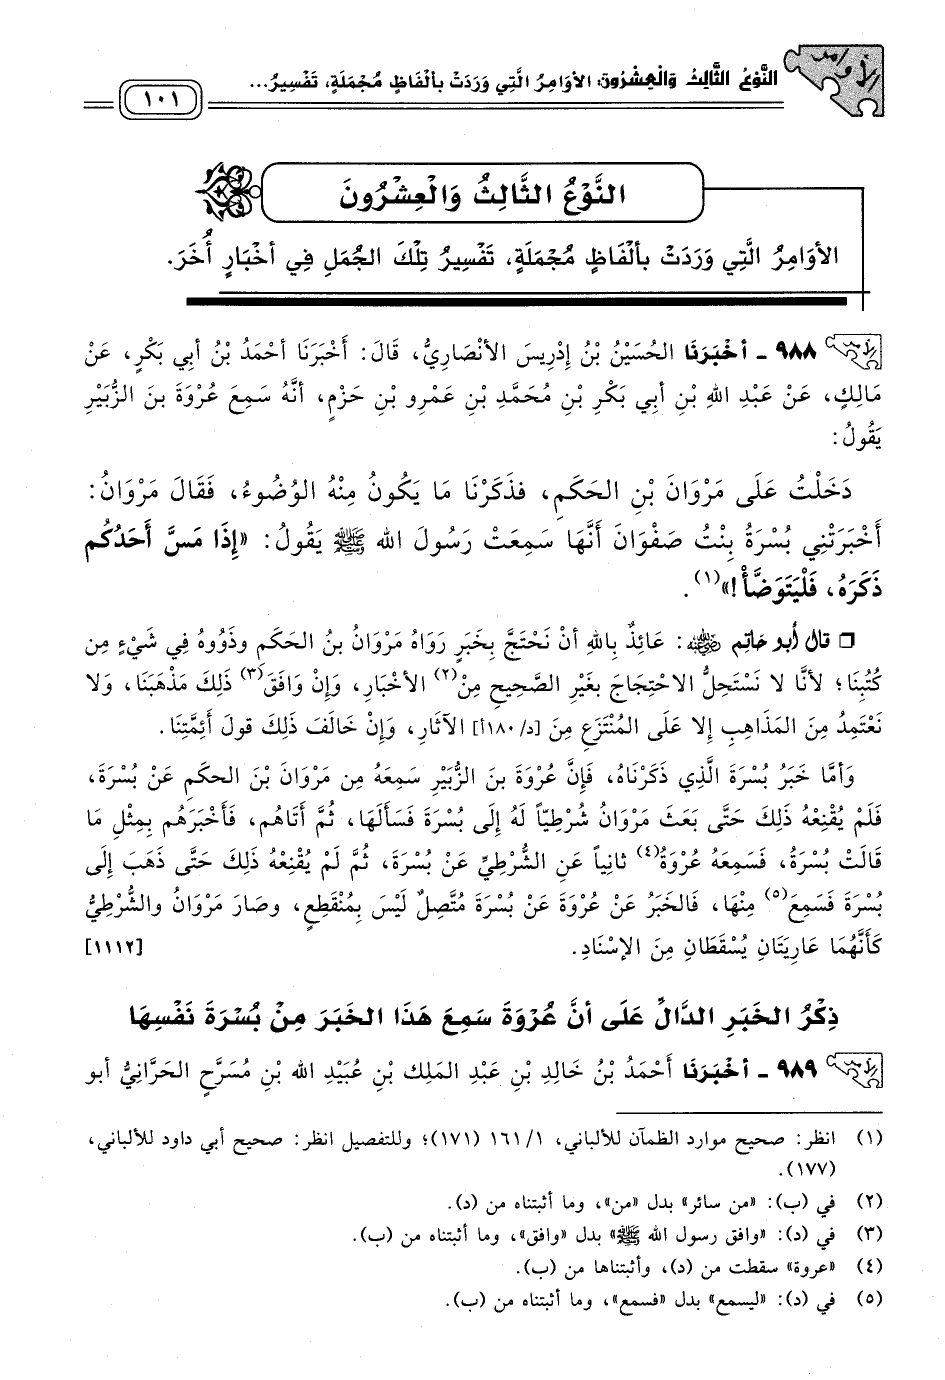 الأوامر
النَّوْعُ الثَّالِثُ وَالْعِشْرُونَ: الأوَامِرُ الَّتِي وَرَدَتْ بِألْفَاظٍ مُجْمَلَةٍ، تَفْسِيرُ...
١٠١
النَّوْعُ الثَّالِثُ وَالْعِشْرُونَ
الأوَامِرُ الَّتِي وَرَدَتْ بِألْفَاظٍ مُجْمَلَةٍ، تَفْسِيرُ تِلْكَ الجُمَلِ فِي أخْبَارٍ أُخَرَ.
٩٨٨ - أخْبَرَنَا الحُسَيْنُ بْنُ إدْرِيسَ الأنْصَارِيُّ، قَالَ: أَخْبَرَنَا أحْمَدُ بْنُ أبِي بَكْرٍ، عَنْ
مَالِكٍ، عَنْ عَبْدِ اللهِ بْنِ أبِي بَكْرِ بْنِ مُحَمَّدِ بْنِ عَمْرِو بْنِ حَزْمٍ، أنَّهُ سَمِعَ عُرْوَةَ بنَ الزُّبَيْرِ
يَقُولُ:
دَخَلْتُ عَلَى مَرْوَانَ بْنِ الحَكَمِ، فذَكَرْنَا مَا يَكُونُ مِنْهُ الوُضُوءُ، فَقَالَ مَرْوَانُ:
أَخْبَرَتْنِي بُسْرَةُ بِنْتُ صَفْوَانَ أَنَّهَا سَمِعَتْ رَسُولَ اللهِ ﷺ يَقُولُ: «إِذَا مَسَّ أَحَدُكُم
ذَكَرَهُ، فَلْيَتَوَضَّأْ!»(١).
□ قال أبو حاتم رضي الله عنه: عَائِذٌ بِاللهِ أنْ نَحْتَجَّ بِخَبَرٍ رَوَاهُ مَرْوَانُ بنُ الحَكَمِ وذَوُوهُ فِي شَيْءٍ مِن
كُتُبِنَا؛ لأنَّا لا نَسْتَحِلُّ الاحْتِجَاجَ بغَيْرِ الصَّحِيحِ مِنْ(٢) الأخْبَارِ، وَإنْ وَافَقَ(٣) ذَلِكَ مَذْهَبَنَا، وَلا
نَعْتَمِدُ مِنَ المَذَاهِبِ إلا عَلَى المُنْتَزَعِ مِنَ [د/١٨٠أ] الآثَارِ، وَإنْ خَالَفَ ذَلِكَ قولَ أئِمَّتِنَا.
وَأمَّا خَبَرُ بُسْرَةَ الَّذِي ذَكَرْنَاهُ، فَإِنَّ عُرْوَةَ بنَ الزُّبَيْرِ سَمِعَهُ مِن مَرْوَانَ بْنَ الحكَمِ عَنْ بُسْرَةَ،
فَلَمْ يُقْنِعْهُ ذَلِكَ حَتَّى بَعَثَ مَرْوَانُ شُرطِيّاً لَهُ إلَى بُسْرَةَ فَسَألَهَا، ثُمَّ أتَاهُم، فَأخْبَرَهُم بِمِثْلِ مَا
قَالَتْ بُسْرَةُ، فَسَمِعَهُ عُرْوَةُ(٤) ثَانِياً عَنِ الشُّرطِيِّ عَنْ بُسْرَةَ، ثُمَّ لَمْ يُقْنِعْهُ ذَلِكَ حَتَّى ذَهَبَ إلَى
بُسْرَةَ فَسَمِعَ(٥) مِنْهَا، فَالخَبَرُ عَنْ عُرْوَةَ عَنْ بُسْرَةَ مُتَّصِلٌ لَيْسَ بِمُنْقَطِعٍ، وصَارَ مَرْوَانُ والشُّرطِيُّ
كَأنَّهُمَا عَارِيَتَانِ يُسْقَطَانِ مِنَ الإسْنَادِ. [١١١٢]
ذِكْرُ الخَبَرِ الدَّالِّ عَلَى أنَّ عُرْوَةَ سَمِعَ هَذَا الخَبَرَ مِنْ بُسْرَةَ نَفْسِهَا
٩٨٩ - أخْبَرَنَا أَحْمَدُ بْنُ خَالِدِ بْنِ عَبْدِ المَلِكِ بْنِ عُبَيْدِ اللهِ بْنِ مُسَرَّحٍ الحَرَّانِيُّ أبو
(١) انظر: صحيح موارد الظمآن للألباني، ١/ ١٦١ (١٧١)؛ وللتفصيل انظر: صحيح أبي داود للألباني،
(١٧٧).
(٢) في (ب): «من سائر» بدل «من»، وما أثبتناه من (د).
(٣) في (د): «وافق رسول الله ﷺ» بدل «وافق»، وما أثبتناه من (ب).
(٤) «عروة» سقطت من (د)، وأثبتناها من (ب).
(٥) في (د): «ليسمع» بدل «فسمع»، وما أثبتناه من (ب).